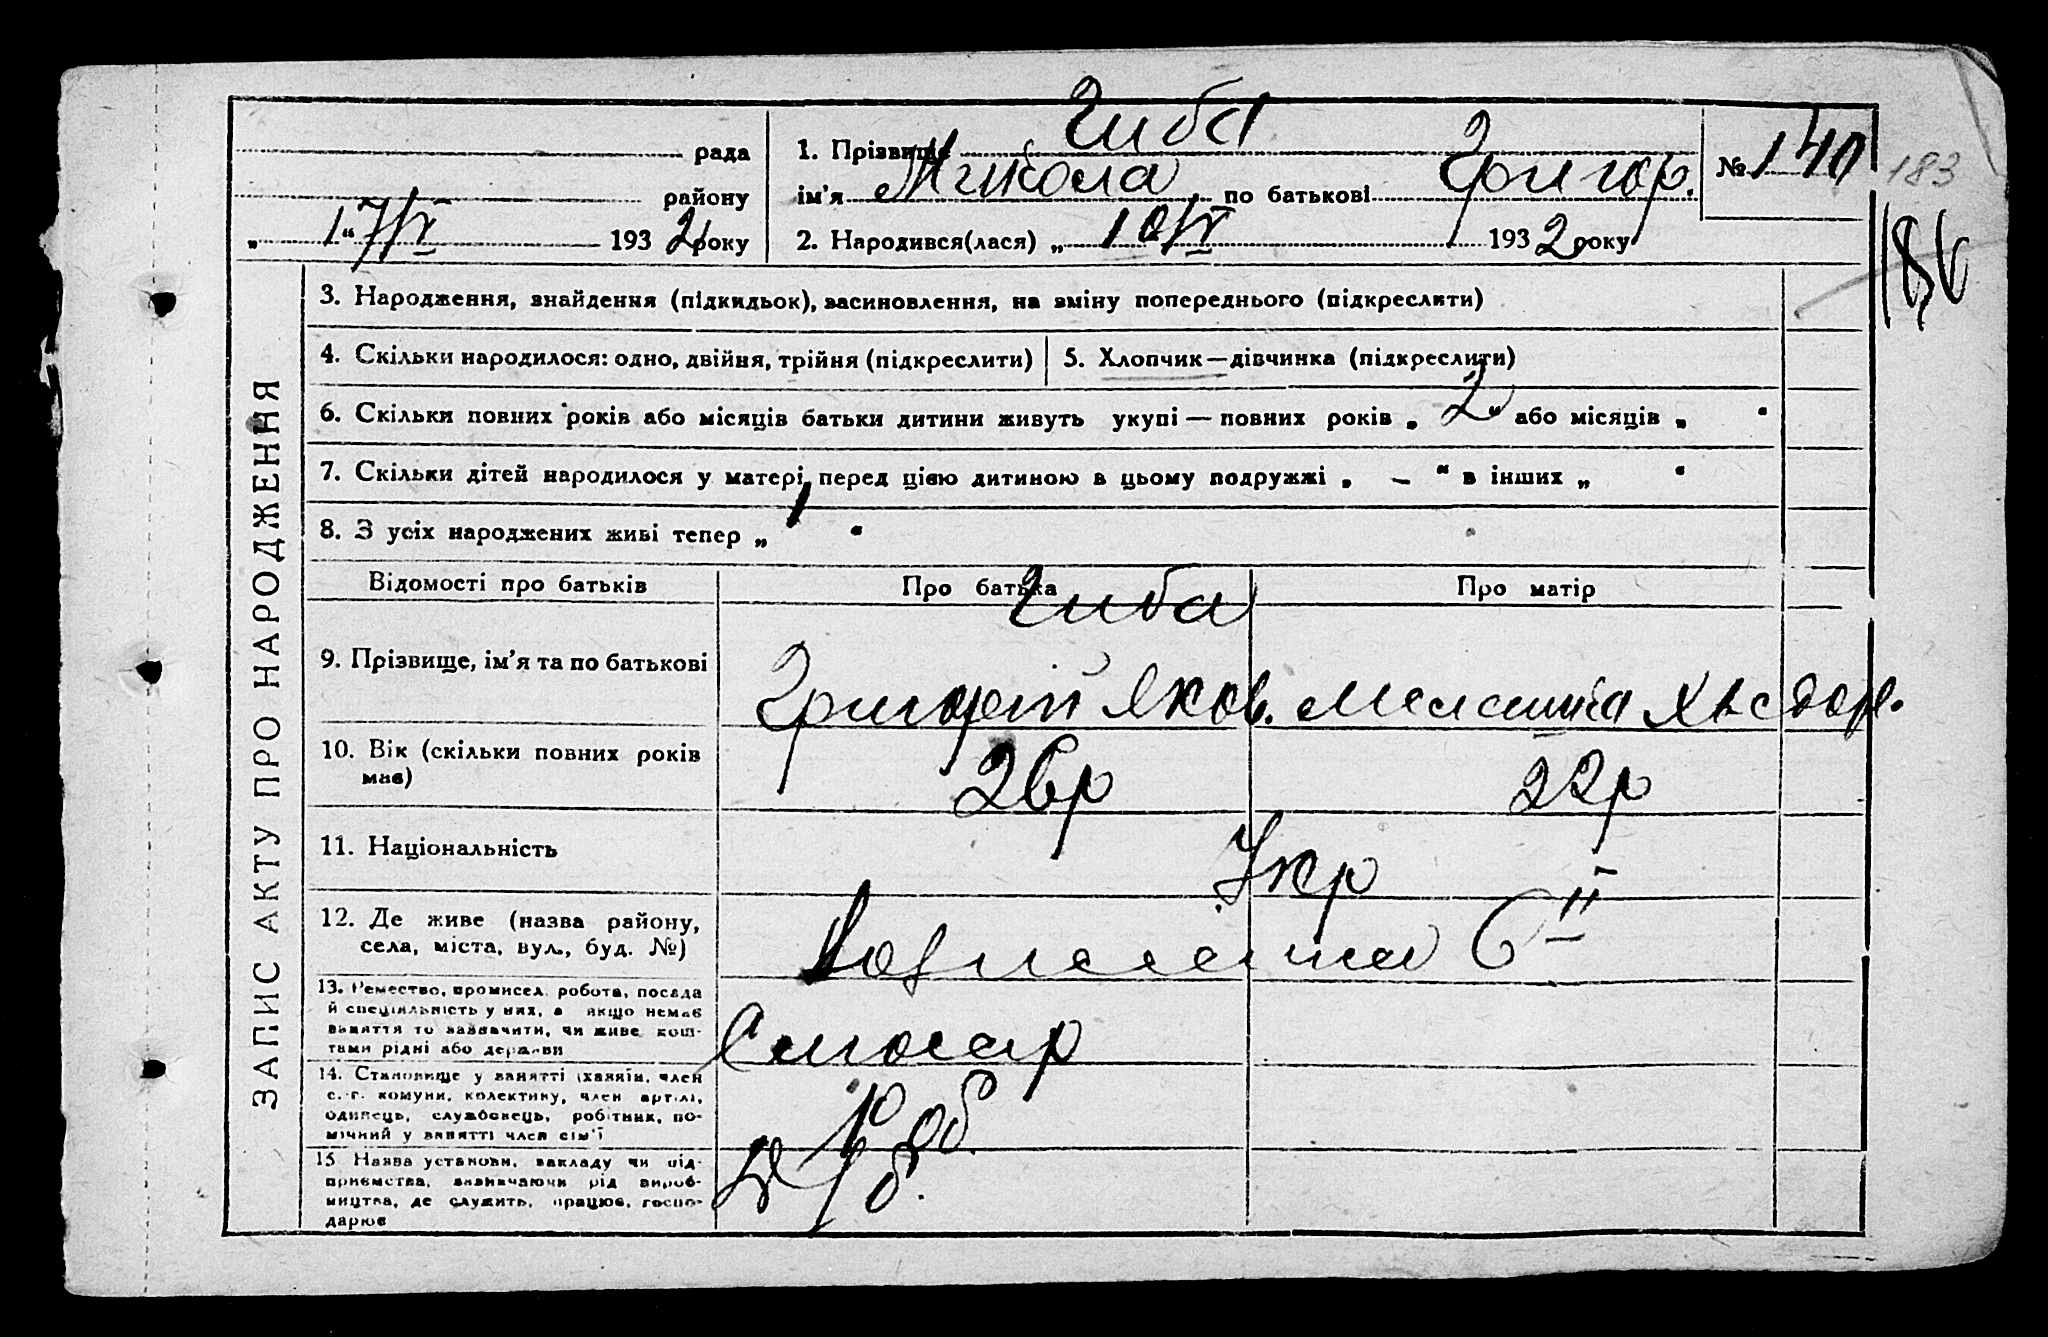 рада
району
„ 17/IV “ 193 2 року
1. Прізвище Гиба
ім'я Микола по батькові Григор.
2. Народився(лася) „ 10/IV 193 2 року
№ 140
183
186
ЗАПИС АКТУ ПРО НАРОДЖЕННЯ
3. Народження, знайдення (підкидьок), засиновлення, на зміну попереднього (підкреслити)
4. Скільки народилося: одно, двійня, трійня (підкреслити)
5. Хлопчик—дівчинка (підкреслити)
6. Скільки повних років або місяців батьки дитини живуть укупі — повних років „ 2 “ або місяців „ “
7. Скільки дітей народилося у матері перед цією дитиною в цьому подружжі „ – “ в інших „ “
8. З усіх народжених живі тепер „ 1 “
Відомості про батьків
Про батька
Про матір
9. Прізвище, ім'я та по батькові
Гиба
Григорій Яков.
10. Вік (скільки повних років
має)
26 р
22 р
11. Національність
Укр
12. Де живе (назва району,
села, міста, вул., буд. №)
13. Ремество, промисел, робота, посада
й спеціяльність у них, а якщо немає
заняття то зазначити, чи живе кош-
тами рідні або держави
Слюсар
14. Становище у занятті (хазяїн, член
с.-г. комуни, колектину, член артілі,
одинець, службовець, робітник, по-
мічний у занятті член сім'ї
Роб.
15 Назва установи, закладу чи під-
приємства, зазначаючи рід вироб-
ництва, де служить, працює, госпо-
дарює